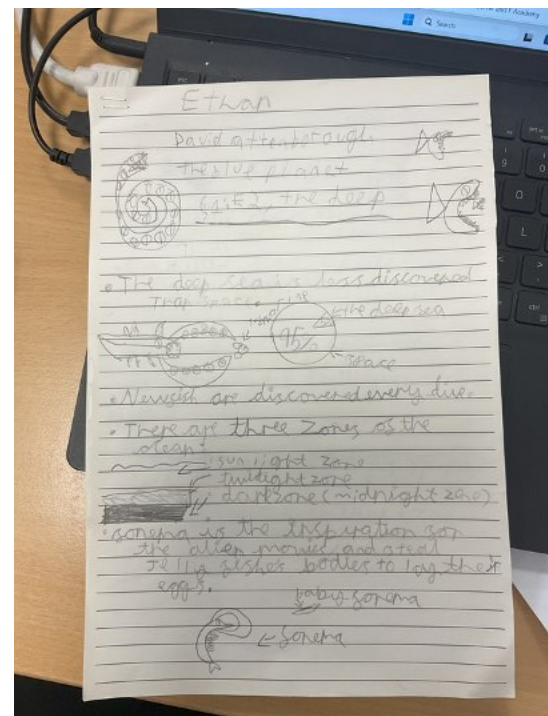 Search
Ethan
David attenborough
the blue planet
the deep
• The deep sea is less discovered
than space.
the deep sea
95%
space
• New fish are discovered every dive.
• There are three zones of the
ocean:
sun light zone
twilight zone
dark zone (midnight zone)
• sonema is the inspiration for
the alien movies and steal
jelly fishes bodies to lay their
eggs.
baby sonema
sonema